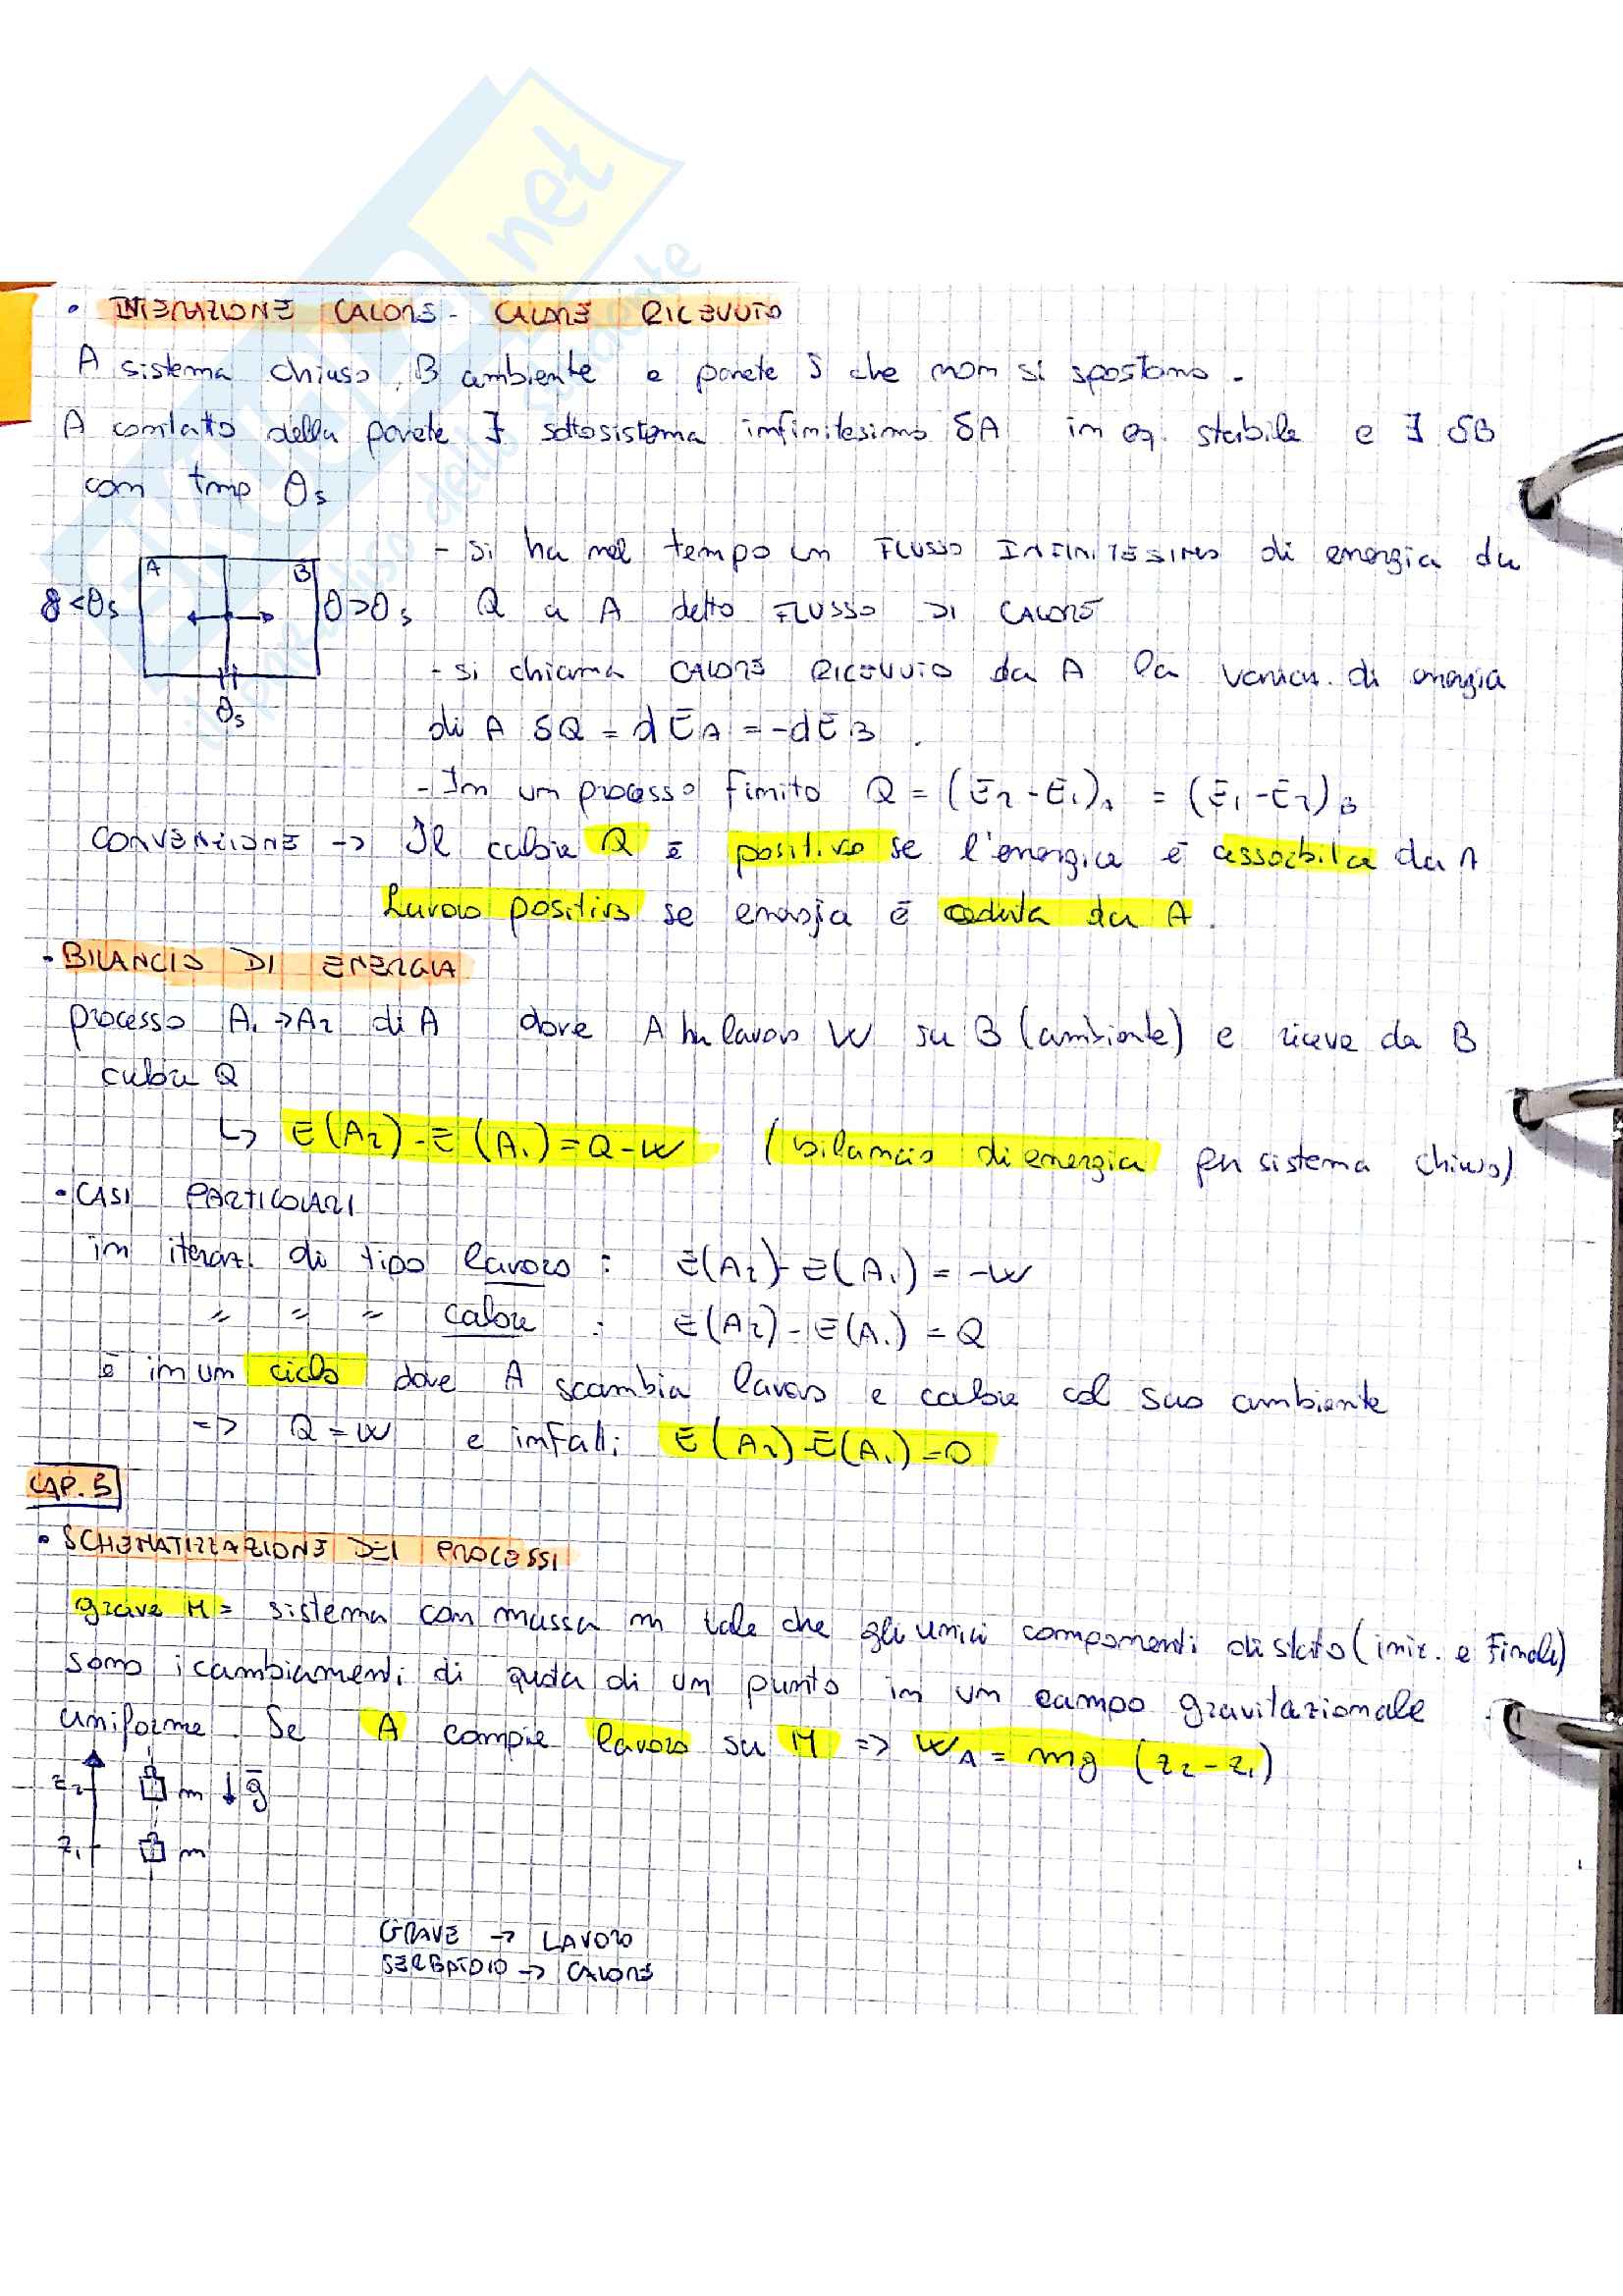 • INTERAZIONE CALORE - CALORE RICEVUTO
A sistema chiuso, B ambiente e parete S che non si spostano.
A contatto della parete ∃ sottosistema infinitesimo δA in eq. stabile e ∃ δB
con tmp θs
- si ha nel tempo un FLUSSO INFINITESIMO di energia da
A B
θ<θs θ>θs
Q a A detto FLUSSO DI CALORE
- si chiama CALORE RICEVUTO da A la variaz. di energia
θs
di A δQ = dEA = -dEB .
- In un processo finito Q = (E2 - E1)A = (E1 - E2)B
CONVENZIONE -> Il calore Q è positivo se l'energia è assorbita da A
Lavoro positivo se energia è ceduta da A.
• BILANCIO DI ENERGIA
processo A1 -> A2 di A dove A ha lavoro W su B (ambiente) e riceve da B
calore Q
↳ E(A2) - E(A1) = Q - W (bilancio di energia per sistema chiuso)
• CASI PARTICOLARI
in iteraz. di tipo lavoro : E(A2) - E(A1) = -W
" " " calore : E(A2) - E(A1) = Q
e in un ciclo dove A scambia lavoro e calore col suo ambiente
=> Q = W e infatti E(A2) - E(A1) = 0
CAP. 5
• SCHEMATIZZAZIONE DEI PROCESSI
grave M = sistema con massa m tale che gli unici componenti di stato (iniz. e finali)
sono i cambiamenti di quota di un punto in un campo gravitazionale
uniforme. Se A compie lavoro su M => WA = mg (z2 - z1)
z2 m ↓ g
z1 m
GRAVE -> LAVORO
SERBATOIO -> CALORE
net